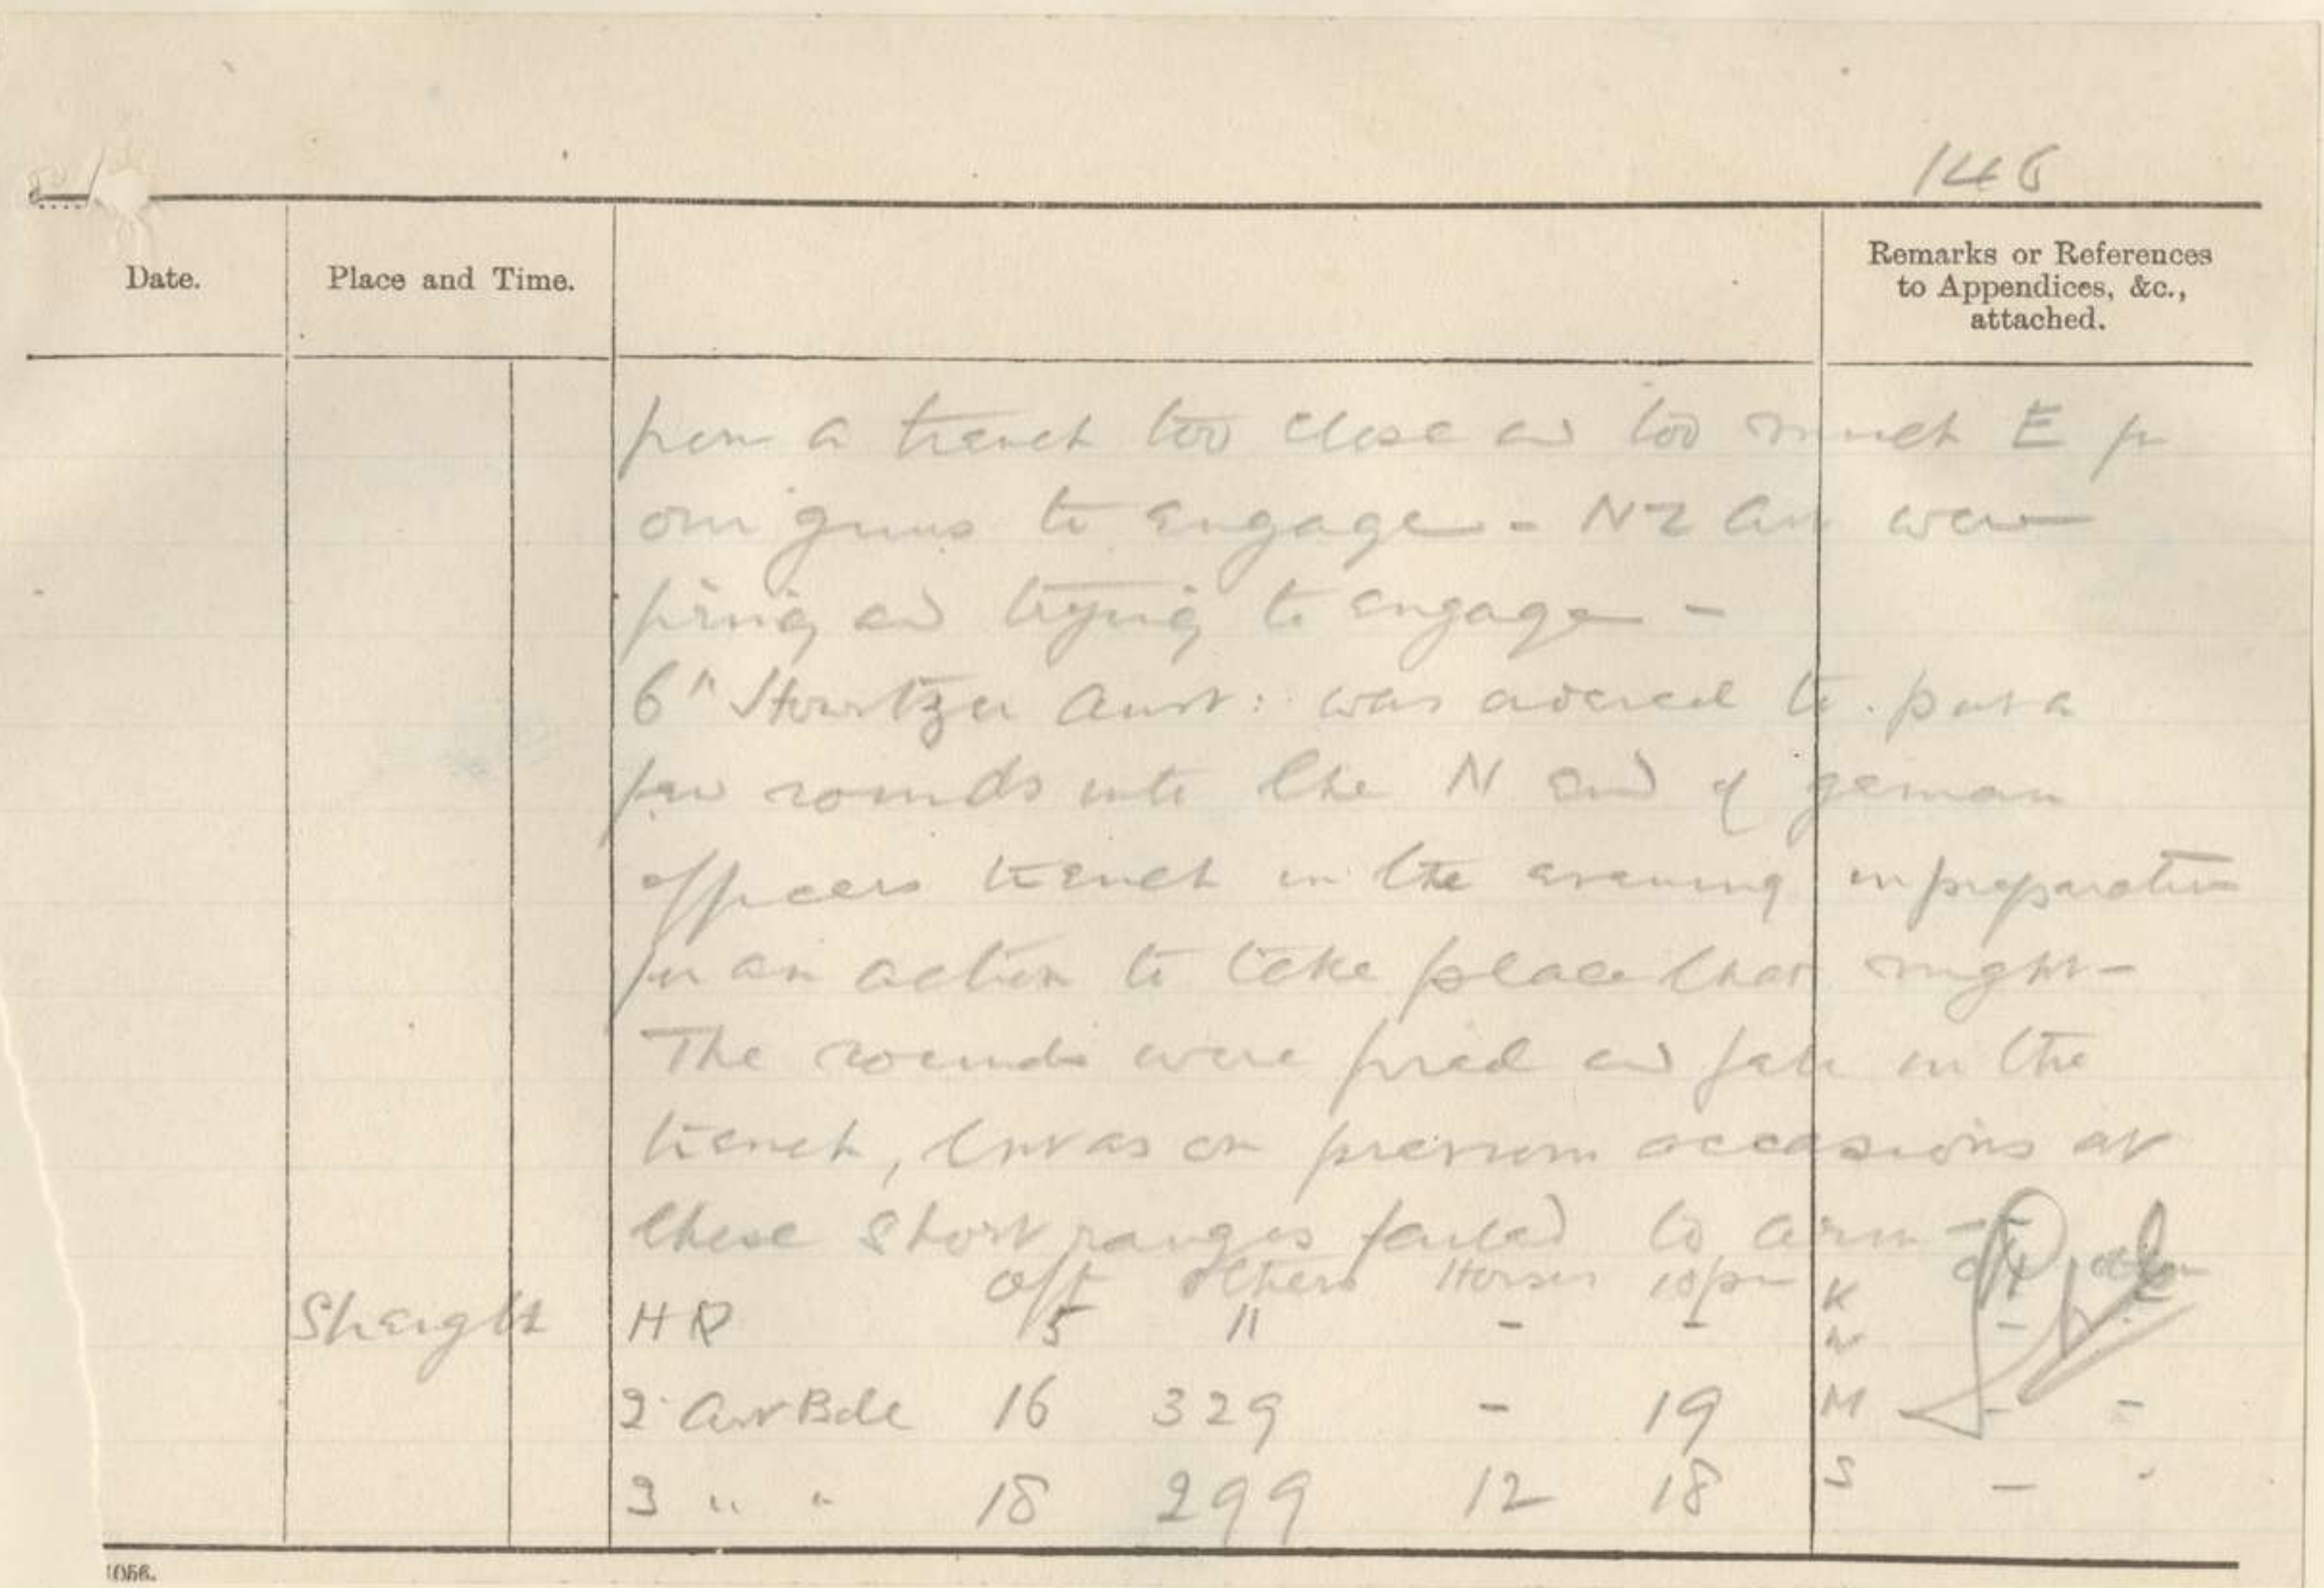 146
Date.
Place and Time.
Remarks or References
to Appendices, &c.,
attached.
from a trench too close and too much E for
our guns to engage - NZ Art were
firing and trying to engage -
6" Howitzer Aust: was ordered to put a
few rounds into the N end of german
officers trench in the evening in preparation
for an action to take place that night -
The rounds were fired and fell in the
trench, but as on previous occasions at
these short ranges failed to arm -
Off Others Horses 18pr K Off
Strength HQ 5 11 - - W -
2 Art Bde 16 329 - 19 M - -
3 " " 18 299 12 18 S - -
1056.